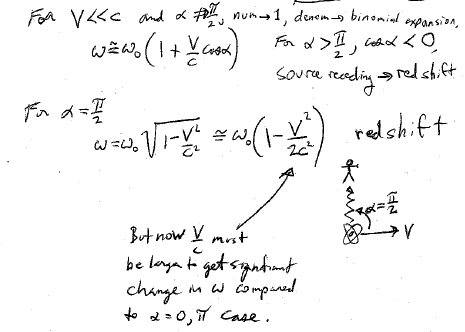 For V<<c and α ≠ π/2, num→1, denom→ binomial expansion,
ω ≅ ω₀(1 + V/c cosα)
For α > π/2, cosα < 0,
source receding → redshift
For α = π/2
ω = ω₀ √(1 - V²/c²) ≅ ω₀(1 - V²/2c²) redshift
α = π/2
V
But now V/c must
be larger to get significant
change in ω compared
to α = 0, π case.